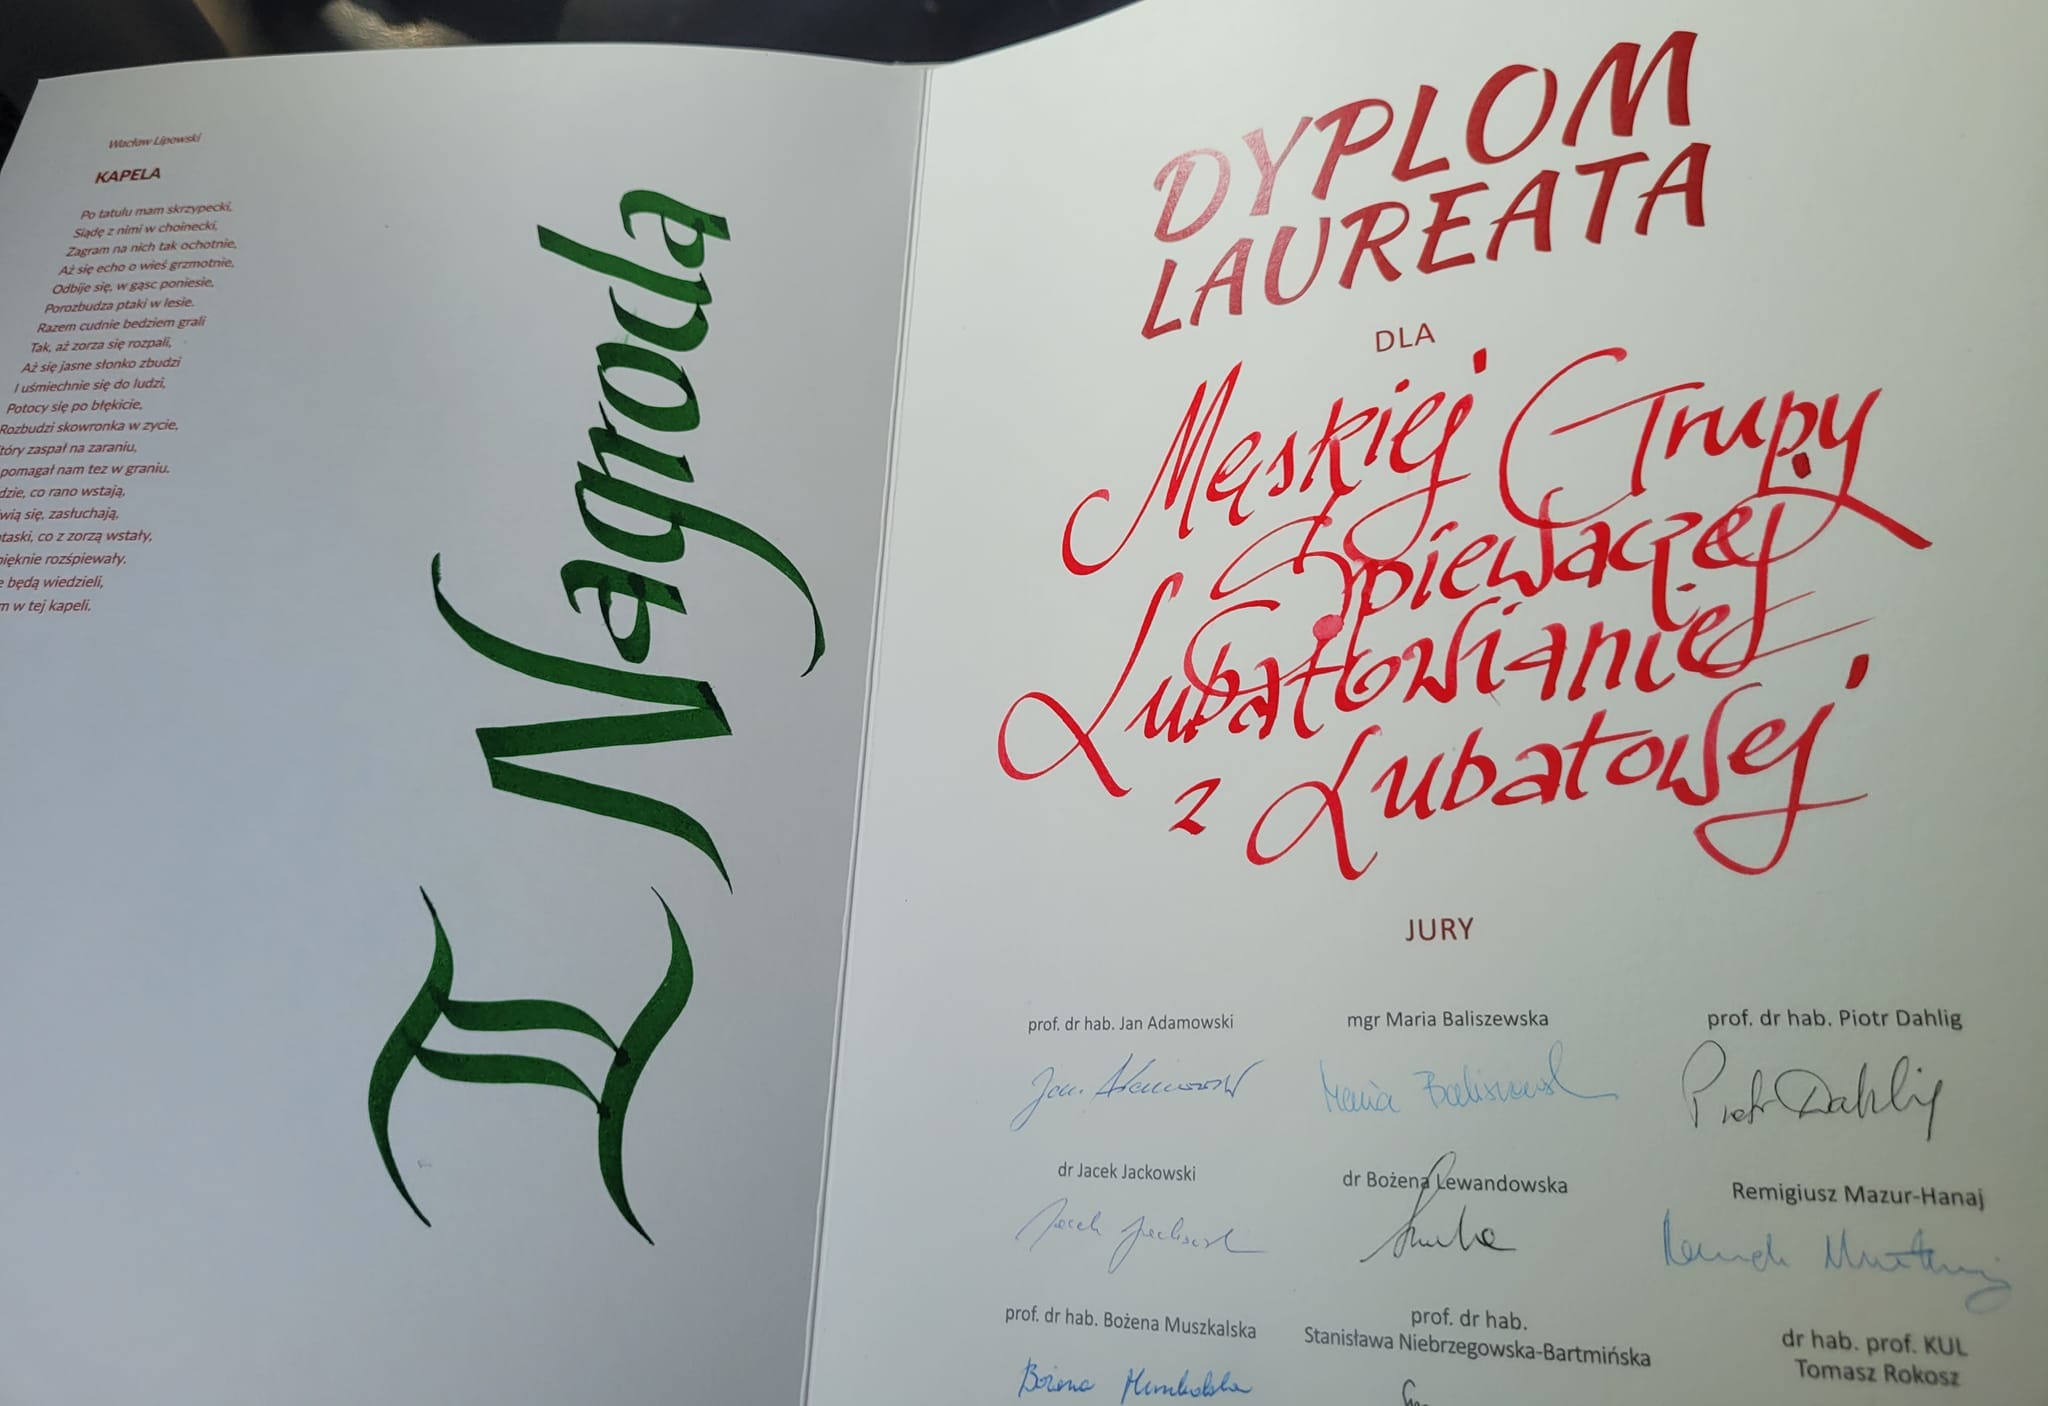 Wacław Lipowski
KAPELA
Po tatulu mam skrzypecki,
Siądę z nimi w choinecki,
Zagram na nich tak ochotnie,
Aż się echo o wieś grzmotnie,
Odbije się, w gąsc poniesie,
Porozbudza ptaki w lesie.
Razem cudnie bedziem grali
Tak, aż zorza się rozpali,
Aż się jasne słonko zbudzi
I uśmiechnie się do ludzi,
Potocy się po błękicie,
Rozbudzi skowronka w zycie,
tóry zaspał na zaraniu,
pomagał nam tez w graniu.
dzie, co rano wstają,
wią się, zasłuchają,
taski, co z zorzą wstały,
pięknie rozśpiewały.
e będą wiedzieli,
m w tej kapeli.
I Nagroda
DYPLOM
LAUREATA
DLA
Męskiej Grupy
Śpiewaczej
Lubatowianie
z Lubatowej
JURY
prof. dr hab. Jan Adamowski
mgr Maria Baliszewska
prof. dr hab. Piotr Dahlig
Jan Adamowski
Maria Baliszewsk
Piotr Dahlig
dr Jacek Jackowski
dr Bożena Lewandowska
Remigiusz Mazur-Hanaj
Jacek Jackowski
prof. dr hab. Bożena Muszkalska
prof. dr hab.
Stanisława Niebrzegowska-Bartmińska
dr hab. prof. KUL
Tomasz Rokosz
Bożena Muszkalska